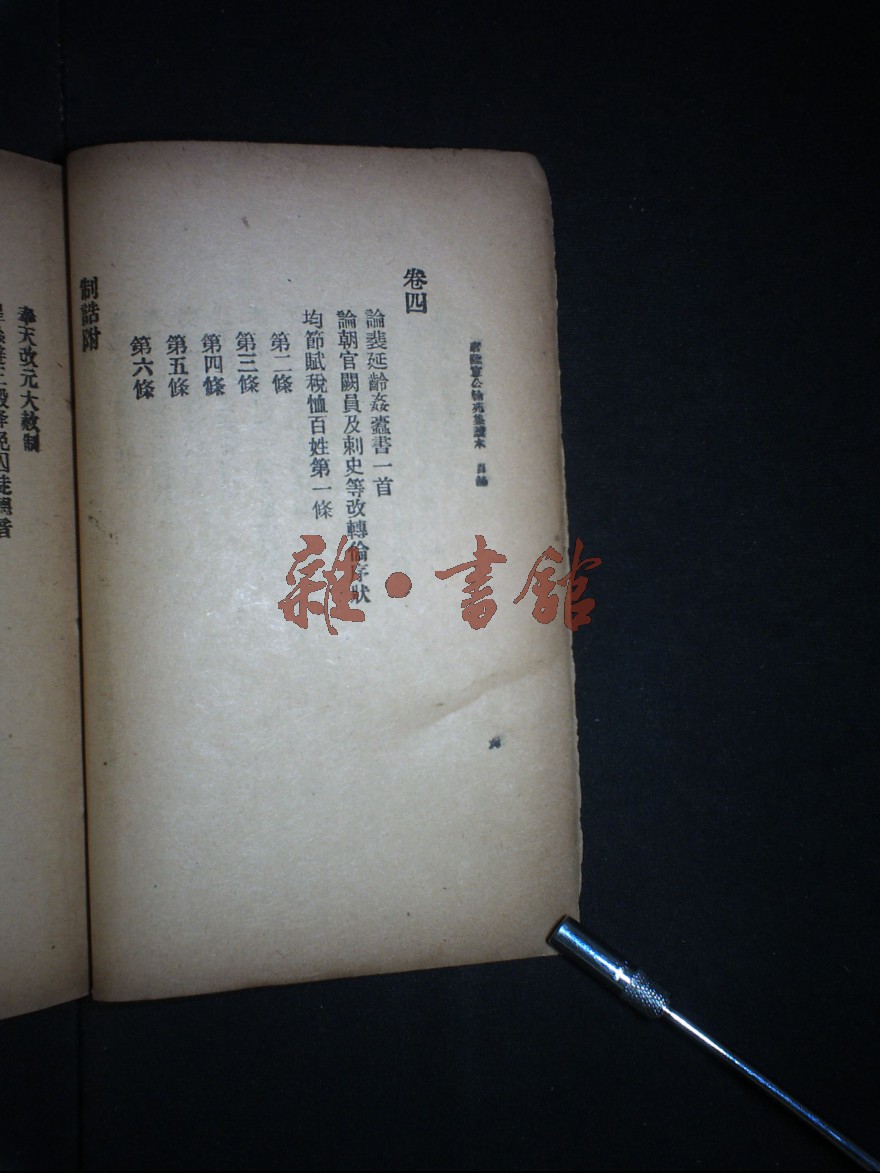 卷四
論裴延齡姦蠹書一首
論朝官闕員及刺史等改轉倫序狀
均節賦稅恤百姓第一條
第二條
第三條
第四條
第五條
第六條
制誥附
奉天改元大赦制
雜·書館